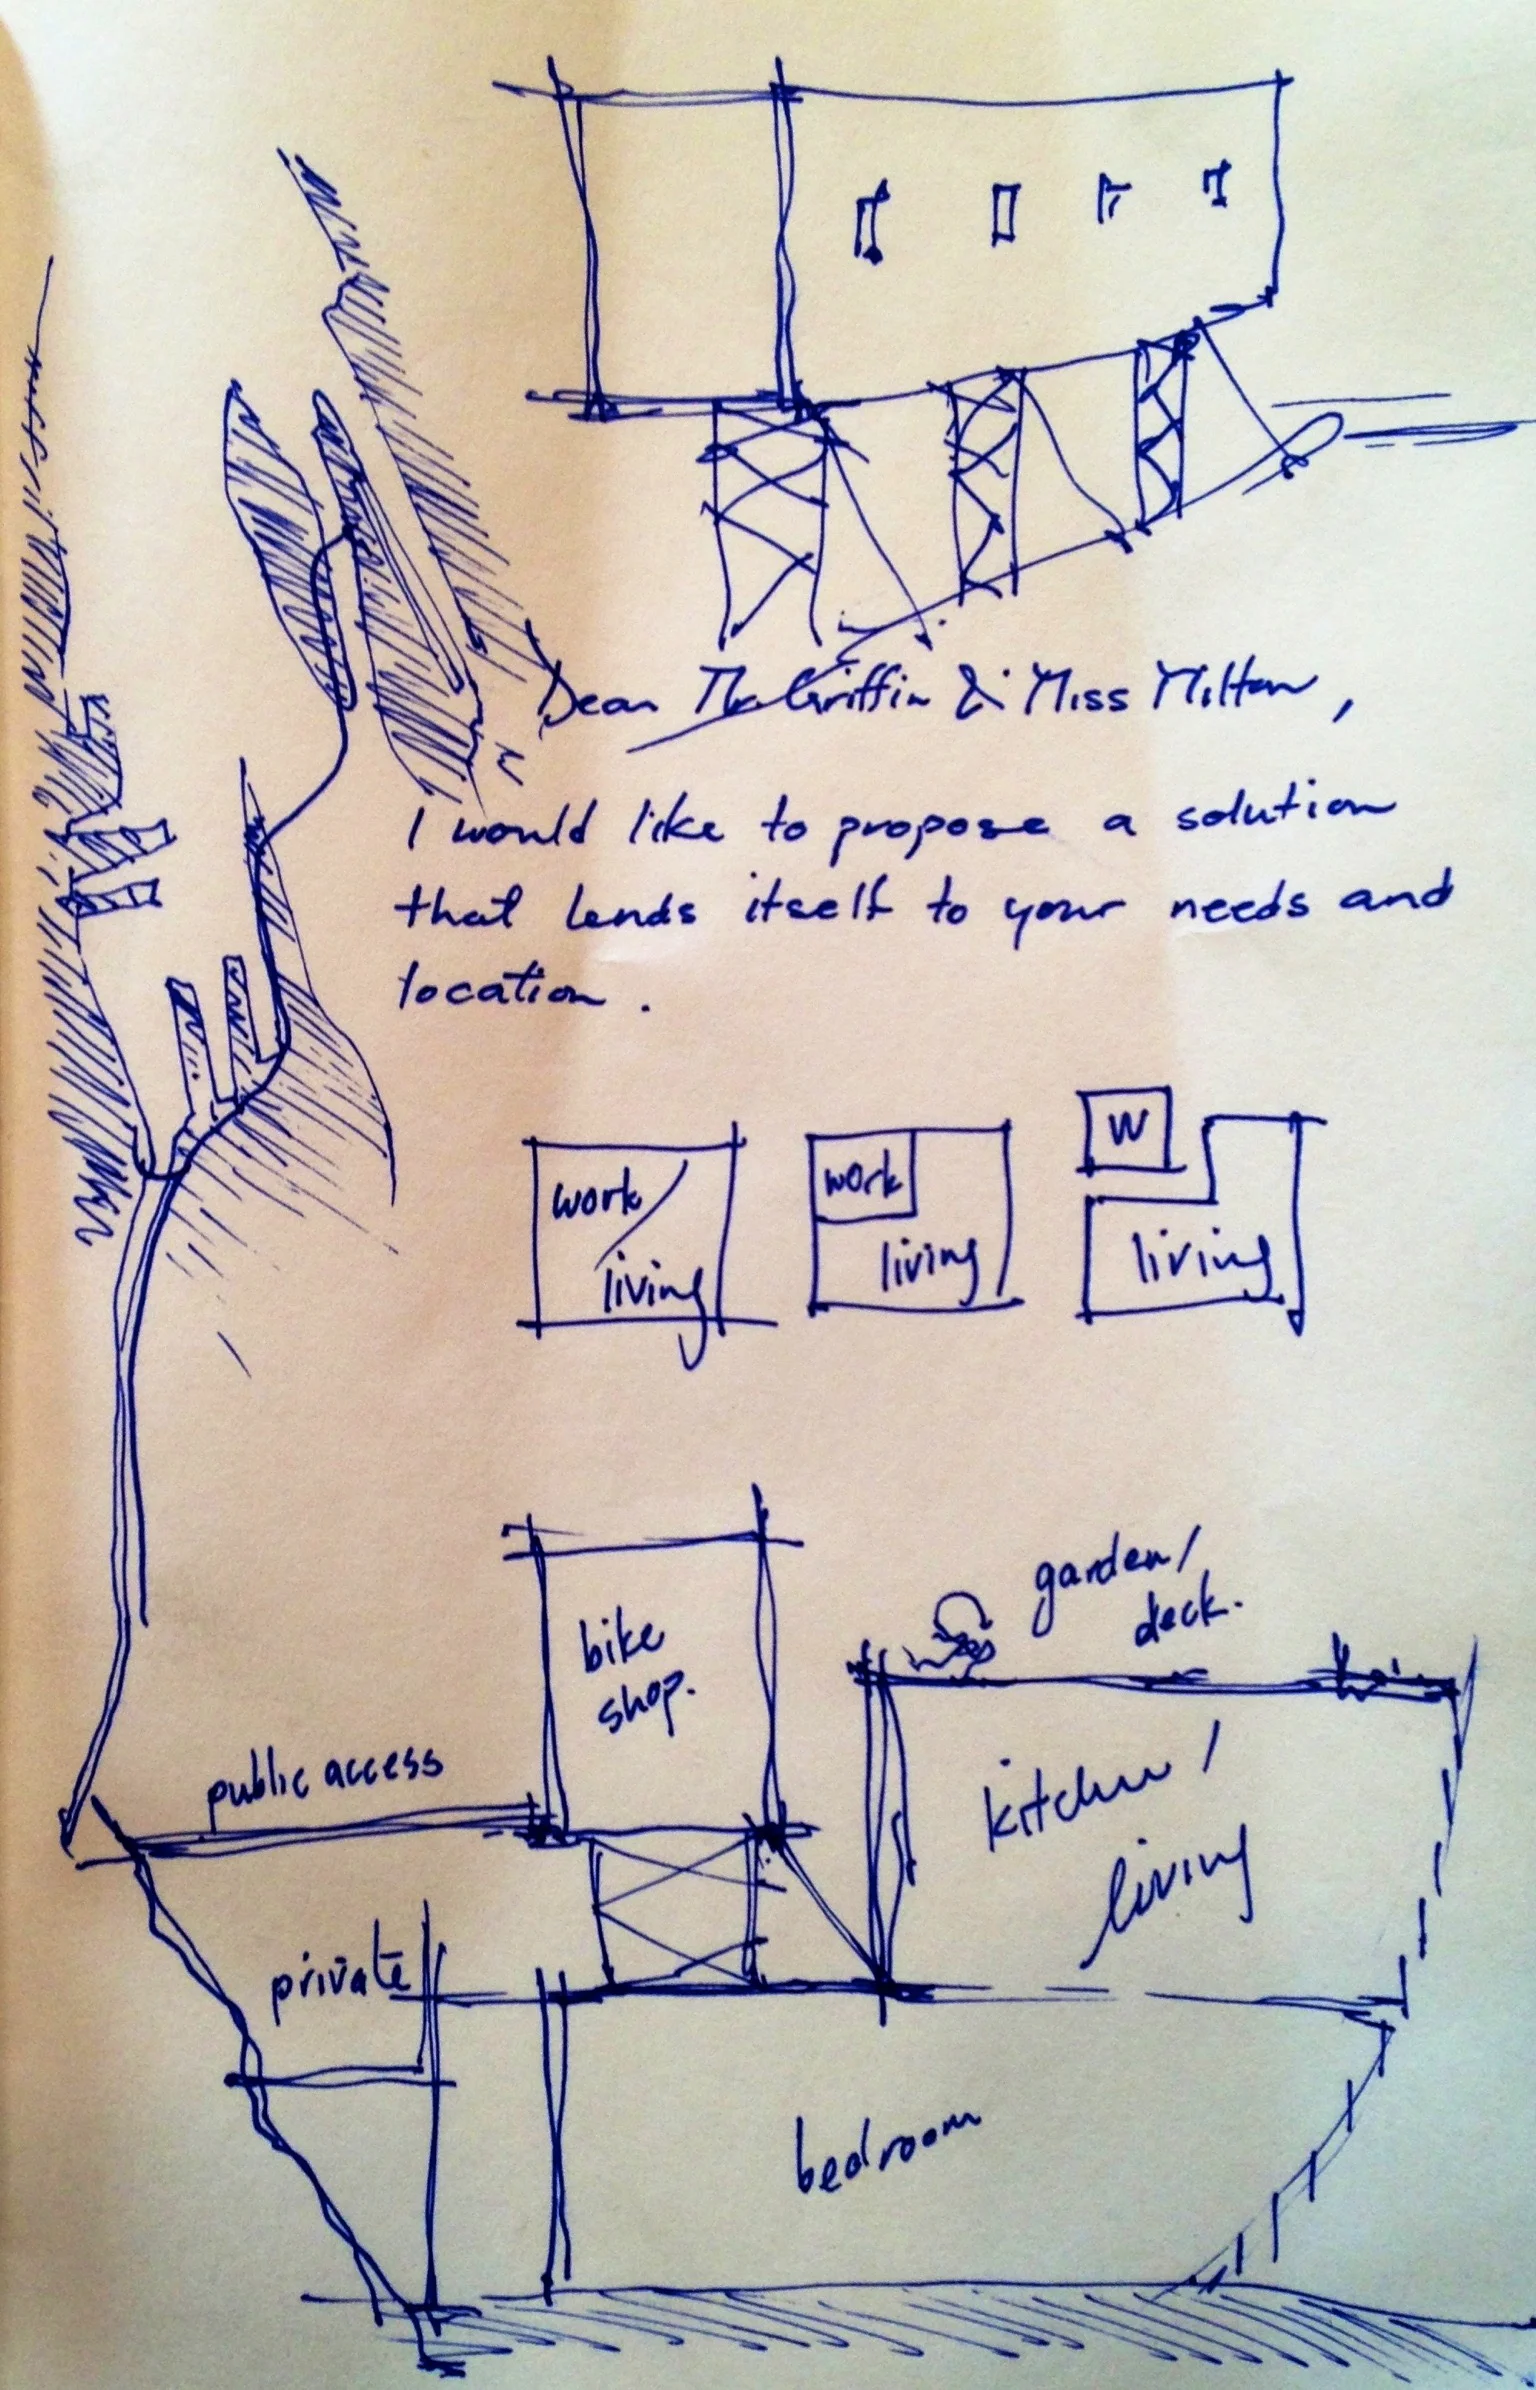 Dear Mr Griffin & Miss Milton,
I would like to propose a solution
that lends itself to your needs and
location.
work/
living
work
living
W
living
bike
shop.
garden/
deck.
public access
kitchen/
living
private
bedroom